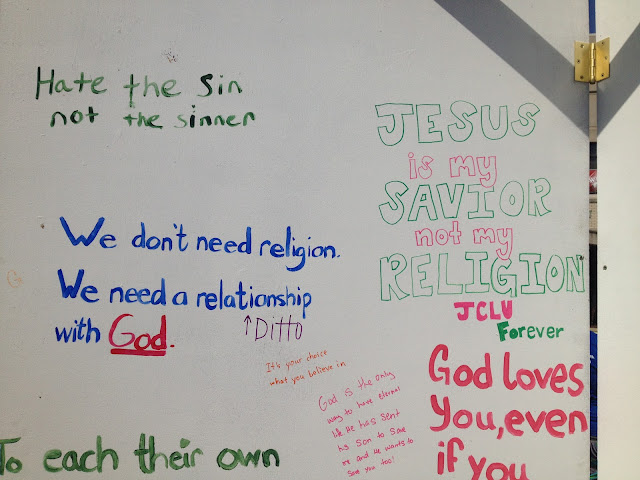 Hate the Sin
not the sinner
JESUS
is my
SAVIOR
not my
RELIGION
JCLU
Forever
We don't need religion.
We need a relationship
with God.
↑Ditto
It's your choice
what you believe in
God is the only
way to have eternal
life. He has sent
his Son to save
me and He wants to
save you too!
God loves
you, even
if you
To each their own